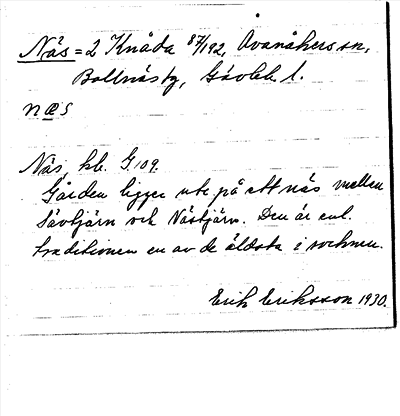 Näs = 2 Knåda 87/192, Ovanåkers sn,
Bollnäs tg, Gävleb. l.
næs
Näs, kb. G. 109.
Gården ligger ute på ett näs mellan
Sävtjärn och Nästjärn. Den är enl.
traditionen en av de äldsta i socknen.
Erik Eriksson 1930.